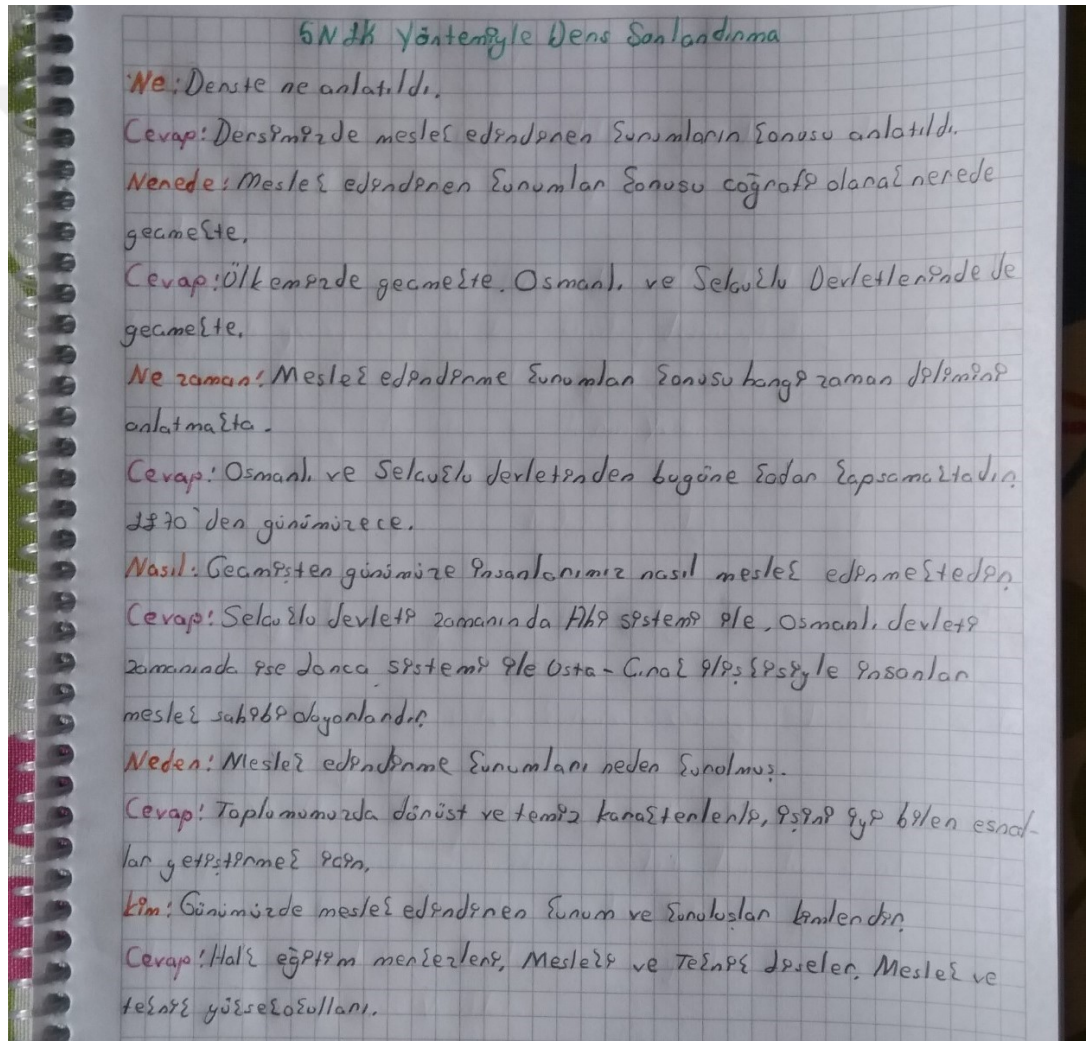 5N1K Yöntemiyle Ders Sonlandırma
Ne: Derste ne anlatıldı.
Cevap: Dersimizde meslek edindiren kurumların konusu anlatıldı.
Nerede: Meslek edindiren kurumlar konusu coğrafi olarak nerede
gecmekte.
Cevap: Ülkemizde gecmekte. Osmanlı ve Selcuklu Devletlerinde de
gecmekte.
Ne zaman: Meslek edindirme kurumları konusu hangi zaman dilimini
anlatmakta.
Cevap: Osmanlı ve Selcuklu devletinden bugüne kadar kapsamaktadır.
1870'den günümüzece.
Nasıl: Gecmişten günümüze insanlarımız nasıl meslek edinmektedir.
Cevap: Selcuklu devleti zamanında Ahi sistemi ile, Osmanlı devleti
zamanında ise lonca sistemi ile Usta-Cırak ilişkisiyle insanlar
meslek sahibi oluyorlardır.
Neden: Meslek edindirme kurumları neden kurulmuş.
Cevap: Toplumumuzda dürüst ve temiz karakterlerle, işini iyi bilen esnaf-
lar yetiştirmek icin.
Kim: Günümüzde meslek edindiren kurum ve kuruluşlar kimlerdir.
Cevap: Halk eğitim merkezleri, Mesleki ve Teknik liseler. Meslek ve
teknik yüksekokulları.